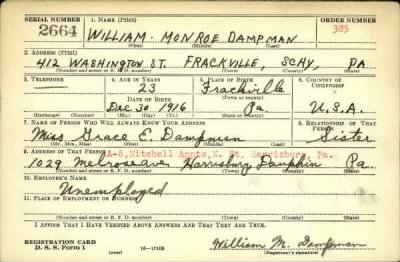 SERIAL NUMBER 1. NAME (Print) ORDER NUMBER
2664 WILLIAM MONROE DAMPMAN 385
(First) (Middle) (Last)
2. ADDRESS (Print)
412 WASHINGTON ST. FRACKVILLE, SCHY, PA
(Number and street or R. F. D. number) (Town) (County) (State)
3. TELEPHONE 4. AGE IN YEARS 5. PLACE OF BIRTH 6. COUNTRY OF CITIZENSHIP
23 Frackville
DATE OF BIRTH (Town or county)
Dec 30 1916 Pa. U.S.A.
(Exchange) (Number) (Mo.) (Day) (Yr.) (State or country)
7. NAME OF PERSON WHO WILL ALWAYS KNOW YOUR ADDRESS 8. RELATIONSHIP OF THAT PERSON
Miss Grace E. Dampman Sister
(Mr., Mrs., Miss) (First) (Middle) (Last)
9. ADDRESS OF THAT PERSON A-5, Mitchell Appts, N. St. Harrisburg, Pa.
1029 Melrose Ave Harrisburg Dauphin Pa
(Number and street or R. F. D. number) (Town) (County) (State)
10. EMPLOYER'S NAME
Unemployed
11. PLACE OF EMPLOYMENT OR BUSINESS
(Number and street or R. F. D. number) (Town) (County) (State)
I AFFIRM THAT I HAVE VERIFIED ABOVE ANSWERS AND THAT THEY ARE TRUE.
REGISTRATION CARD
D. S. S. Form 1 (over) 16—17105 William M. Dampman
(Registrant's signature)